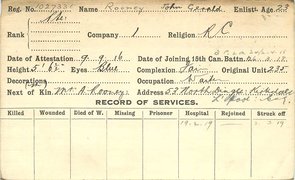 Reg. No. 1027331 Name Rooney John Gerald Enlist. Age 23
Rank Pte. Company 1 Religion R C
Date of Attestation 9.9.16 Date of Joining 18th Can. Battn.
Height 5' 6½" Eyes Blue Complexion Fair Original Unit 235
Decorations Occupation
Next of Kin Mr A Rooney Address 53 North Kirkdale
L'Pool Eng.
RECORD OF SERVICES.
Killed Wounded Died of W. Missing Prisoner Hospital Rejoined Struck off
19.2.19